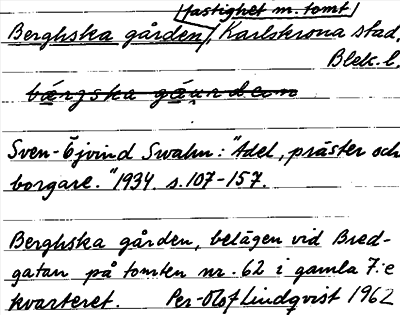 [fastighet m. tomt]
Berghska gården, Karlskrona stad,
Blek. l.
bærgska gåurdeon
Sven-Öjvind Swahn: "Adel, präster och
borgare." 1934. s. 107-157.
Berghska gården, belägen vid Bred-
gatan på tomten nr. 62 i gamla 7:e
kvarteret. Per-Olof Lindqvist 1962